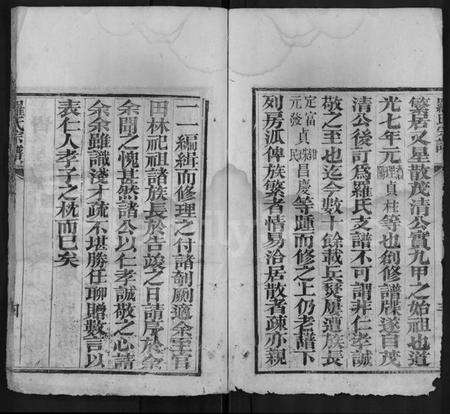 繁居火星散茂清公實九甲之始祖也道
光七年元 貞柱等也創修譜牒遂自茂
清公後訂為羅氏支譜不可謂非仁孝誠
敬之至也迄今數十餘載兵燹屢遭族長
定富貞 昌慶等踵而修之上仍老譜下
元發 民
列房派俾族繁者情易洽居散者疎亦親
一一編緝而修理之付諸剞劂適余至官
田林祀祖諸族長於告竣之日請序於余
余聞之愧甚然諸公以仁孝誠敬之心請
余余雖識淺才疏不堪勝任聊贈數言以
表仁人孝子之忱而已矣
羅氏宗譜